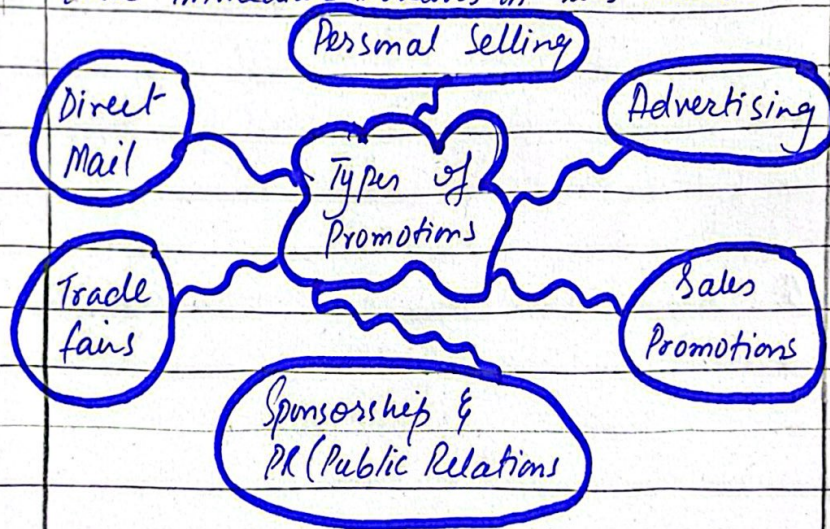 Personal Selling
Direct
Mail
Advertising
Types of
Promotions
Trade
fairs
Sales
Promotions
Sponsorship &
PR (Public Relations